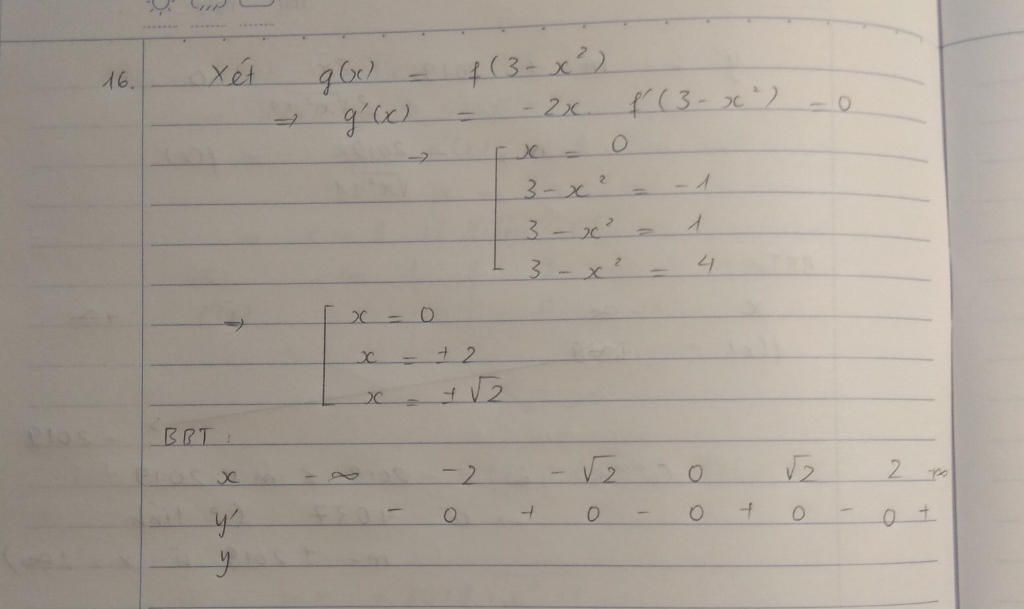 16. Xét g(x) = f(3 - x²)
⇒ g'(x) = -2x. f'(3 - x²) = 0
→ [ x = 0
3 - x² = -1
3 - x² = 1
3 - x² = 4
→ [ x = 0
x = ±2
x = ±√2
BBT:
x -∞ -2 -√2 0 √2 2 +∞
y' - 0 + 0 - 0 + 0 - 0 +
y